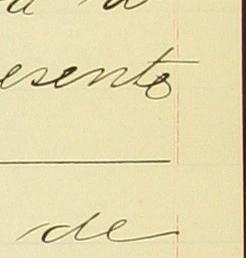 esente
de